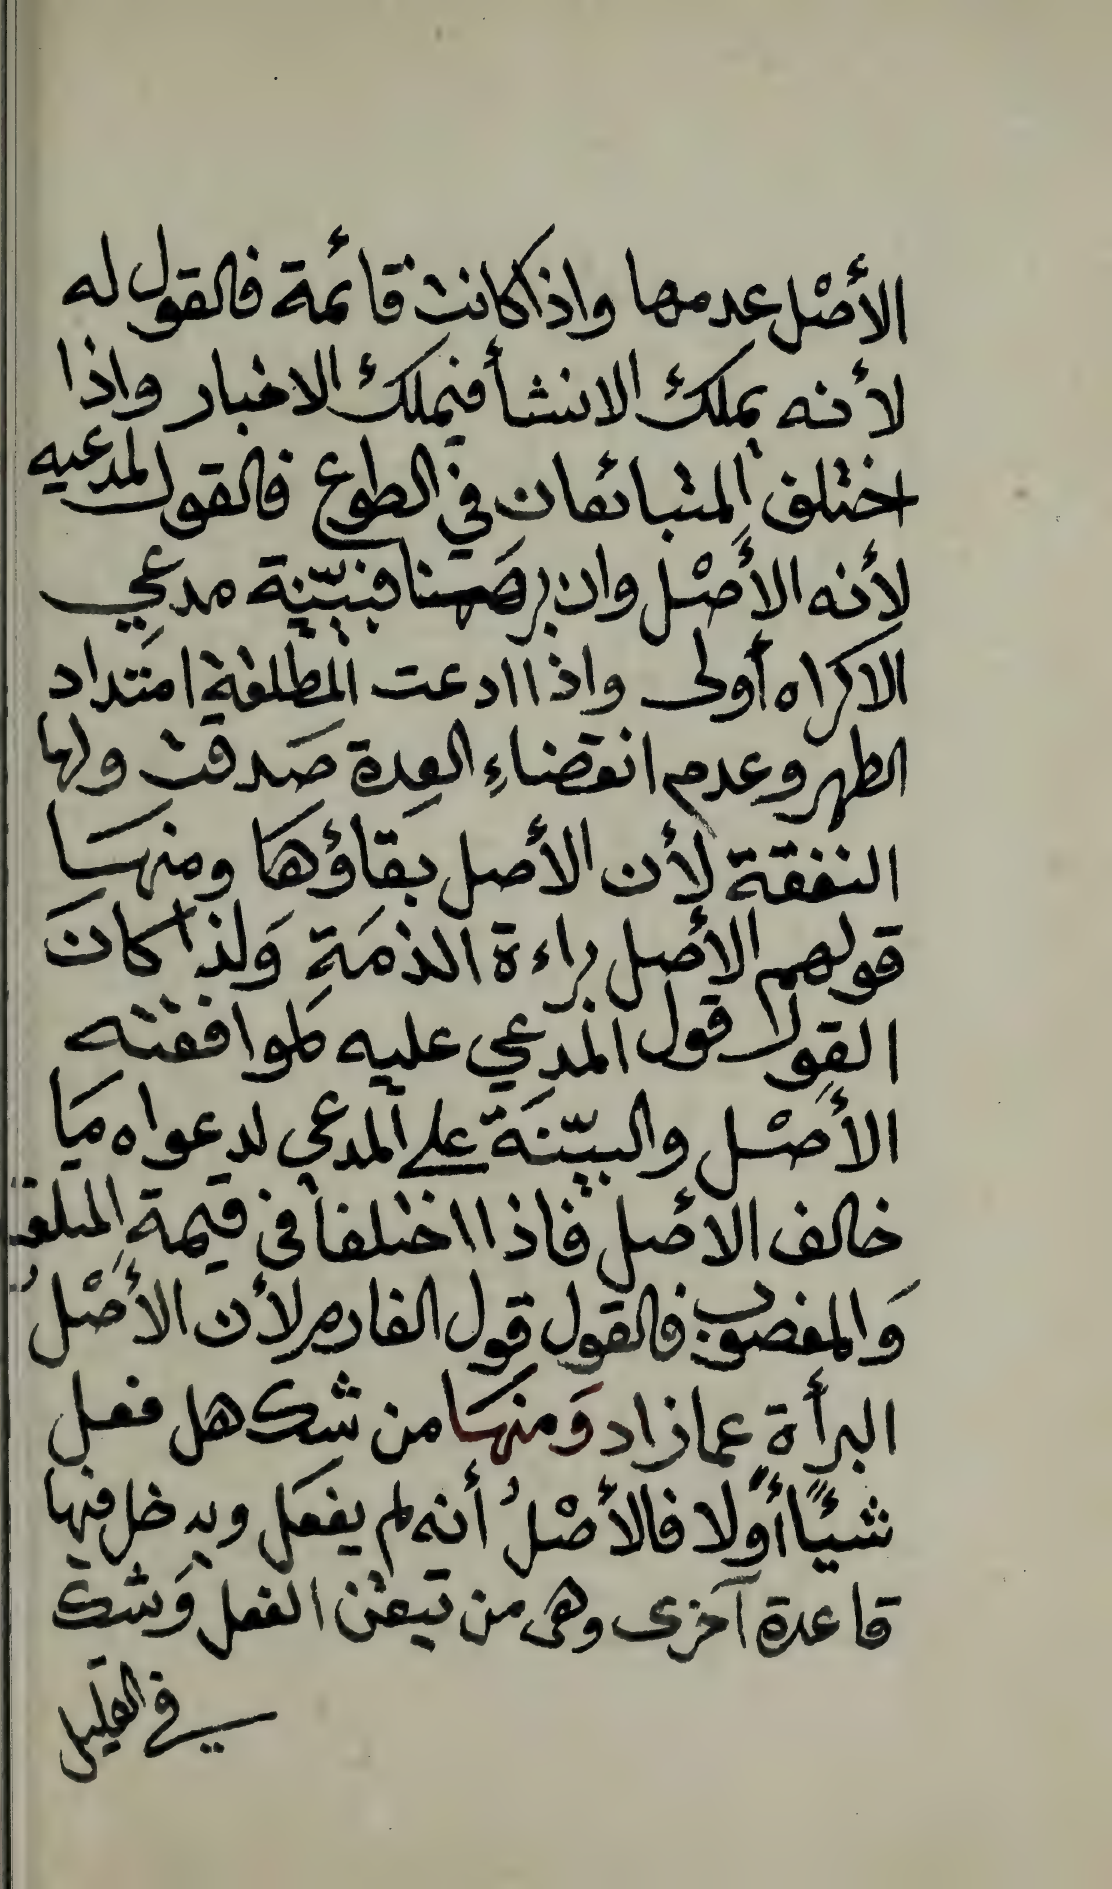 الأصْل عدمها واذا كانت قائمة فالقول له
لأنه يملك الانشأ فيملك الاخبار واذا
اختلف المتبائعان في الطوع فالقول لمدعيه
لأنه الأصْل وان برهنا فبيّنة مدعي
الاكراه أولى واذا ادعت المطلقة امتداد
الطهر وعدم انقضاءِ العِدة صَدقت ولها
النفقة لأن الأصل بقاؤها ومنهَا
قولهم الأصل براءة الذمَةِ وَلذا كانَ
القول قول المدعي عليه لموافقته
الأصْل والبيّنَة على المدعي لدعواه مَا
خالف الأصل فاذا اختلفا في قيمة المتلف
وَالمغصوب فالقول قول الغارم لأن الأصْلُ
البرأة عما زاد وَمنهَا من شك هل فعل
شيئًا أوْلا فالأصْلُ أنه لم يفعَل ويدخل فيها
قاعدة آخرى وهى من تيقن الفعل وَشك
في القليل